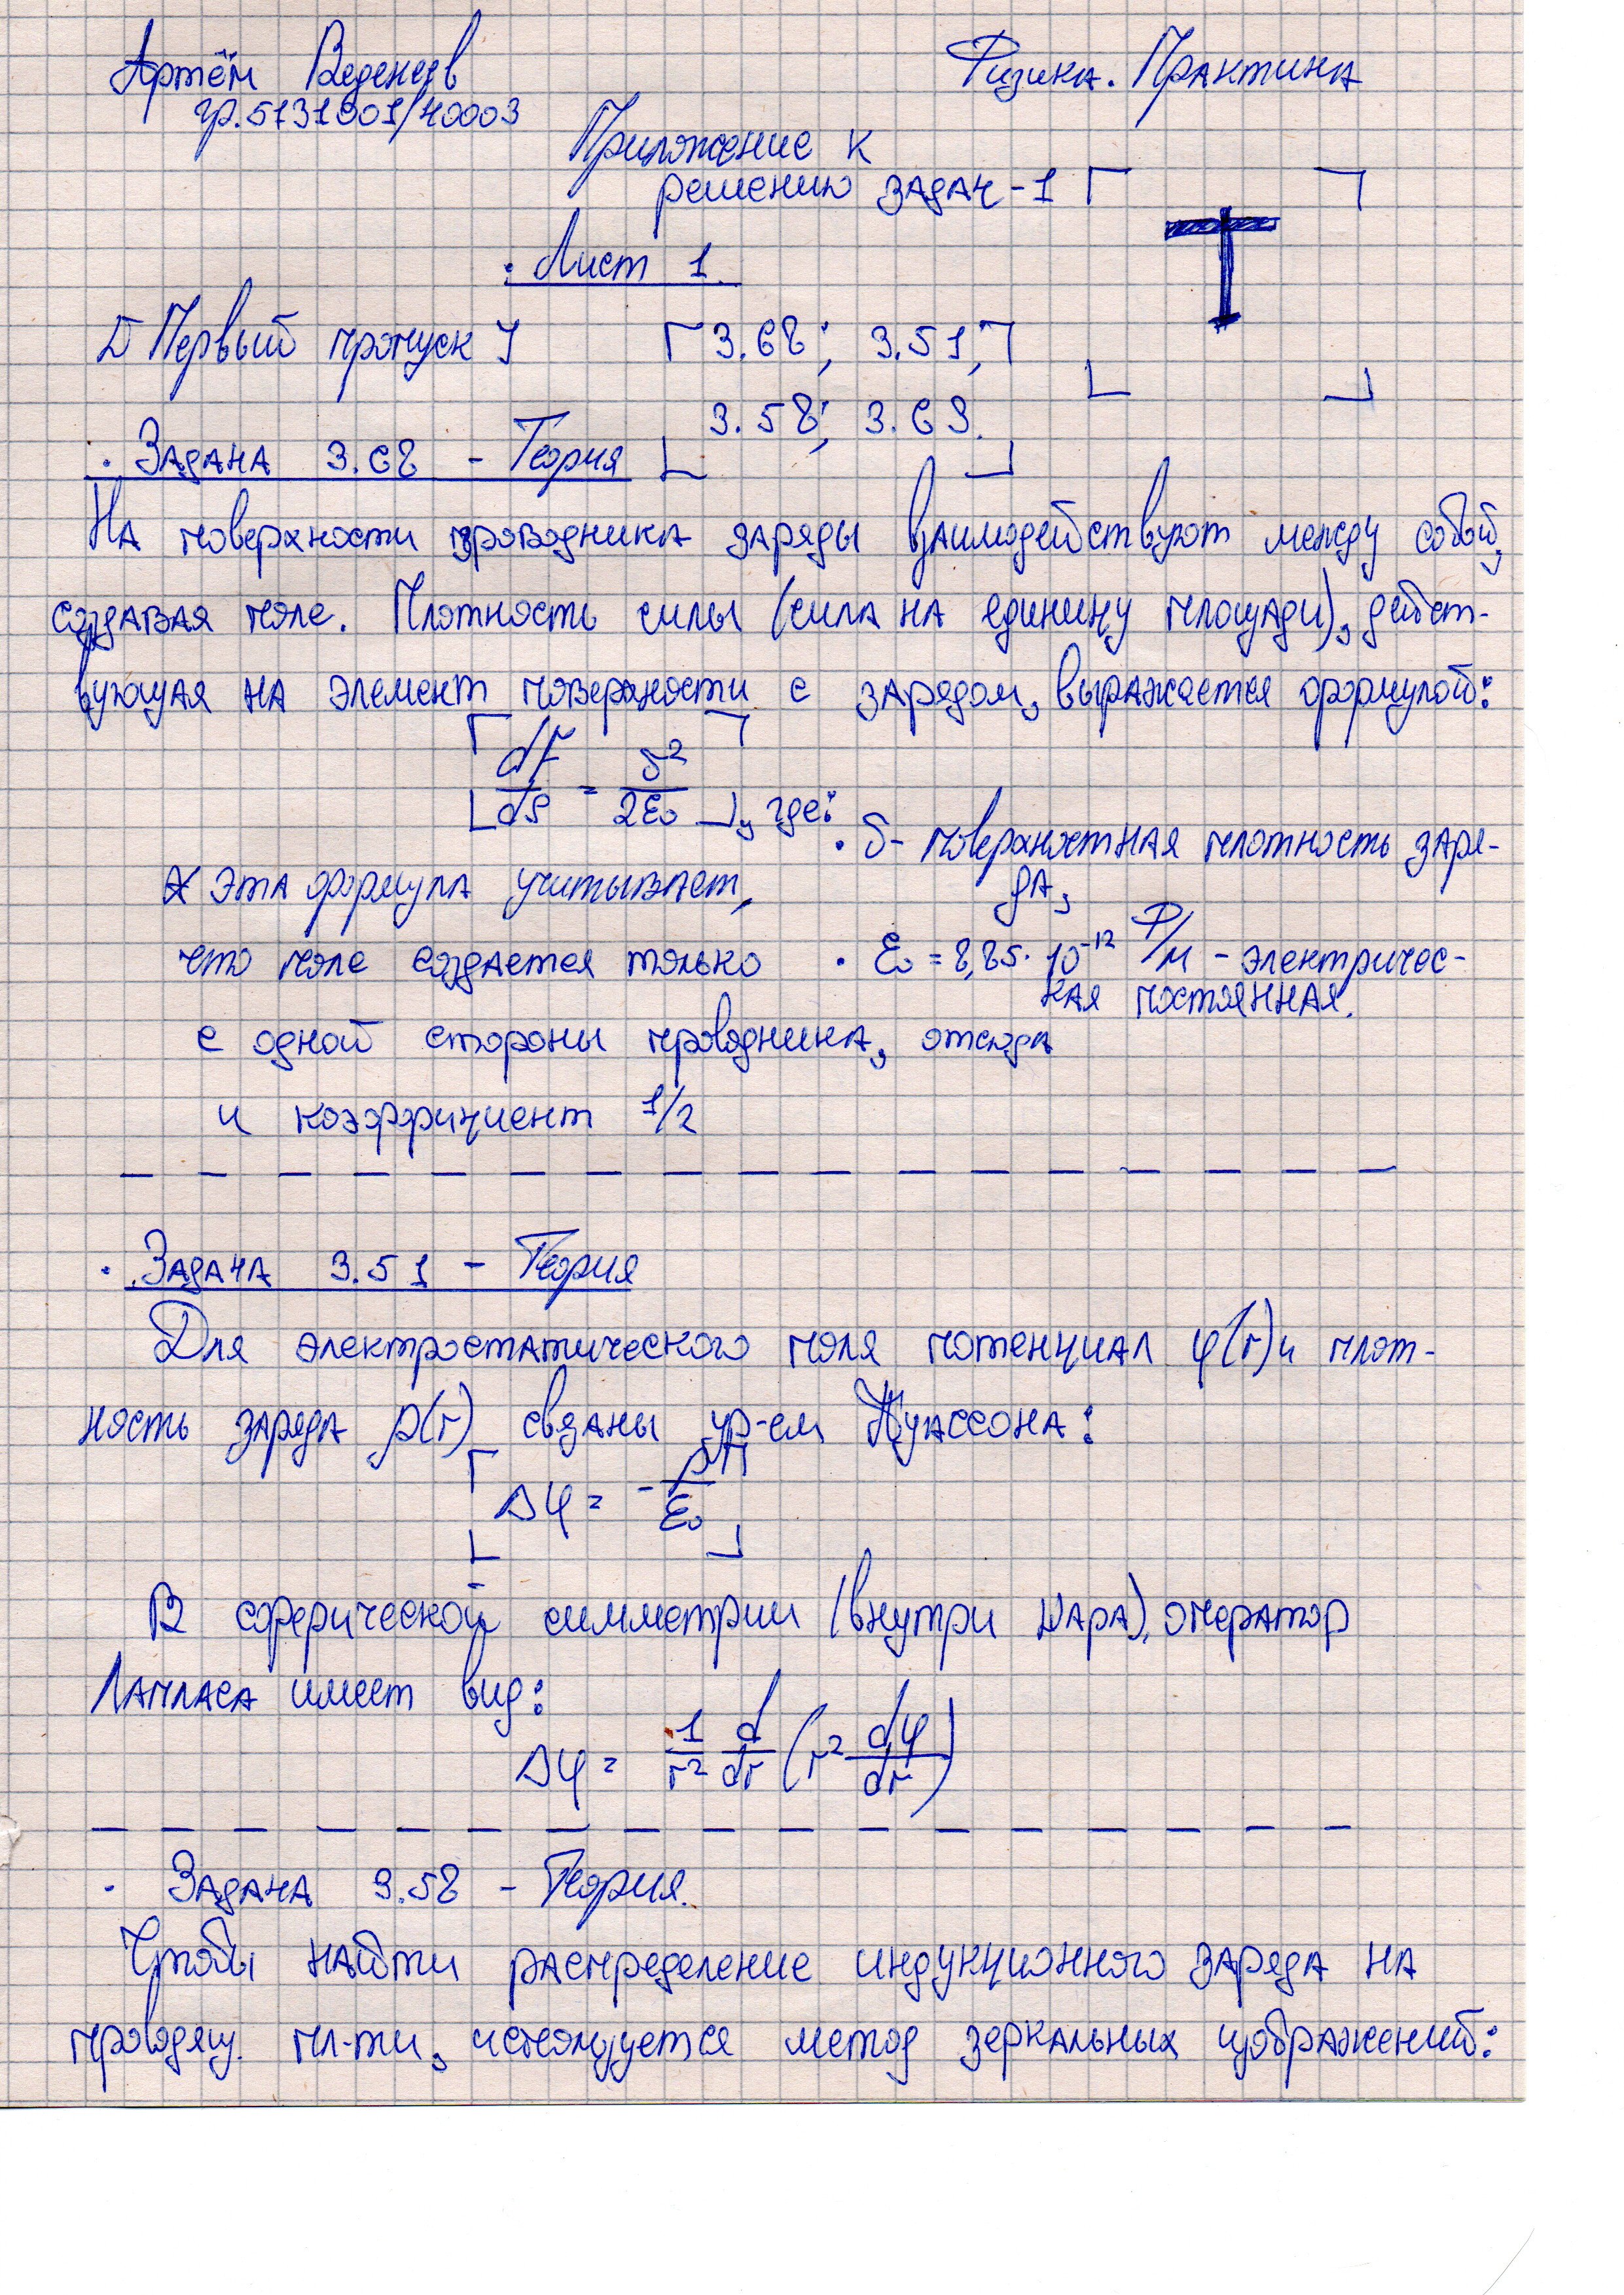 Артём Веденеев
Физика. Практика
гр. 5131901/40003
Приложение к
решению задач-1
Т
Лист 1.
Первый пропуск
3.68; 3.51,
3.58; 3.69.
· Задача 3.68 - Теория
На поверхности проводника заряды взаимодействуют между собой,
создавая поле. Плотность силы (сила на единицу площади), дейст-
вующая на элемент поверхности с зарядом, выражается формулой:
dF/dS = δ²/2ε₀, где:
· δ - поверхностная плотность заря-
да,
* Эта формула учитывает,
что поле создается только
· ε₀ = 8,85 · 10⁻¹² Ф/м - электричес-
кая постоянная.
с одной стороны проводника, отсюда
и коэффициент 1/2
· Задача 3.51 - Теория
Для электростатического поля потенциал φ(r) и плот-
ность заряда ρ(r) связаны ур-ем Пуассона:
Δφ = -ρ/ε₀
В сферической симметрии (внутри шара), оператор
Лапласа имеет вид:
Δφ = 1/r² d/dr (r² dφ/dr)
· Задача 3.58 - Теория.
Чтобы найти распределение индукционного заряда на
проводящ. пл-ти, используется метод зеркальных изображений: